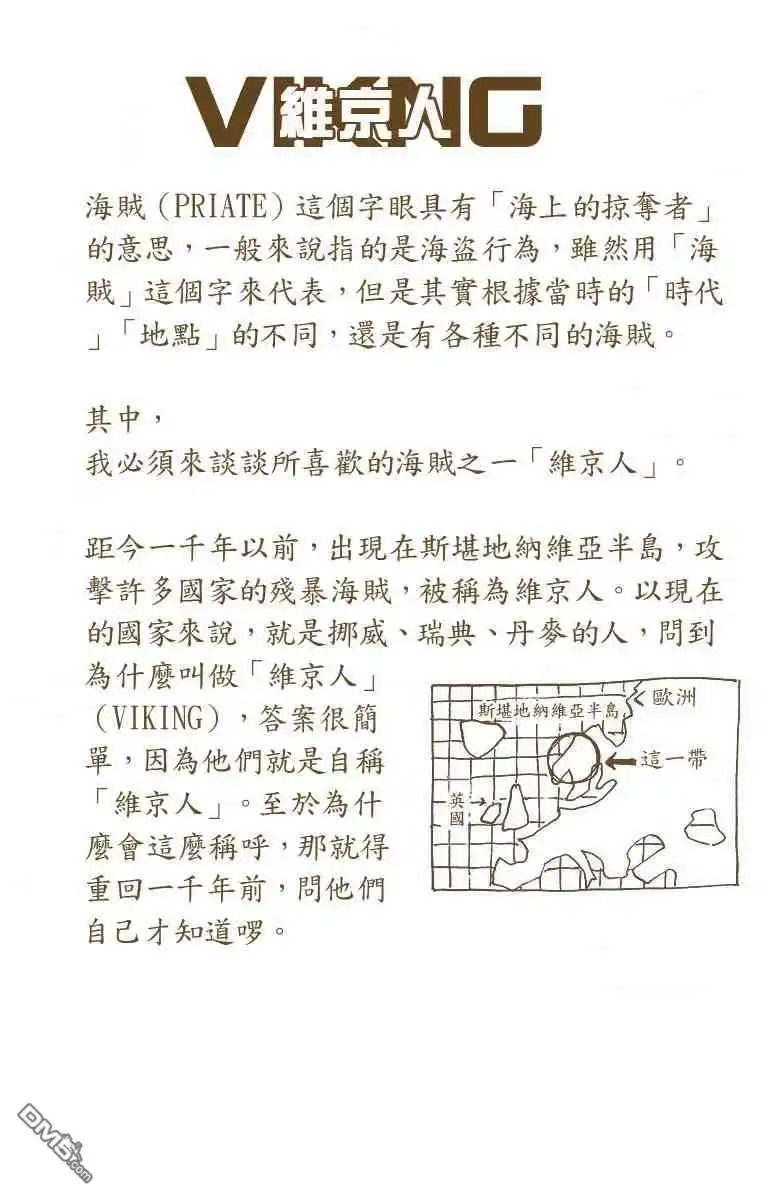 VIKING
維京人
海賊（PRIATE）這個字眼具有「海上的掠奪者」
的意思，一般來說指的是海盜行為，雖然用「海
賊」這個字來代表，但是其實根據當時的「時代
」「地點」的不同，還是有各種不同的海賊。
其中，
我必須來談談所喜歡的海賊之一「維京人」。
距今一千年以前，出現在斯堪地納維亞半島，攻
擊許多國家的殘暴海賊，被稱為維京人。以現在
的國家來說，就是挪威、瑞典、丹麥的人，問到
為什麼叫做「維京人」
（VIKING），答案很簡
單，因為他們就是自稱
「維京人」。至於為什
麼會這麼稱呼，那就得
重回一千年前，問他們
自己才知道啰。
歐洲
斯堪地納維亞半島
這一帶
英國
DM5.com